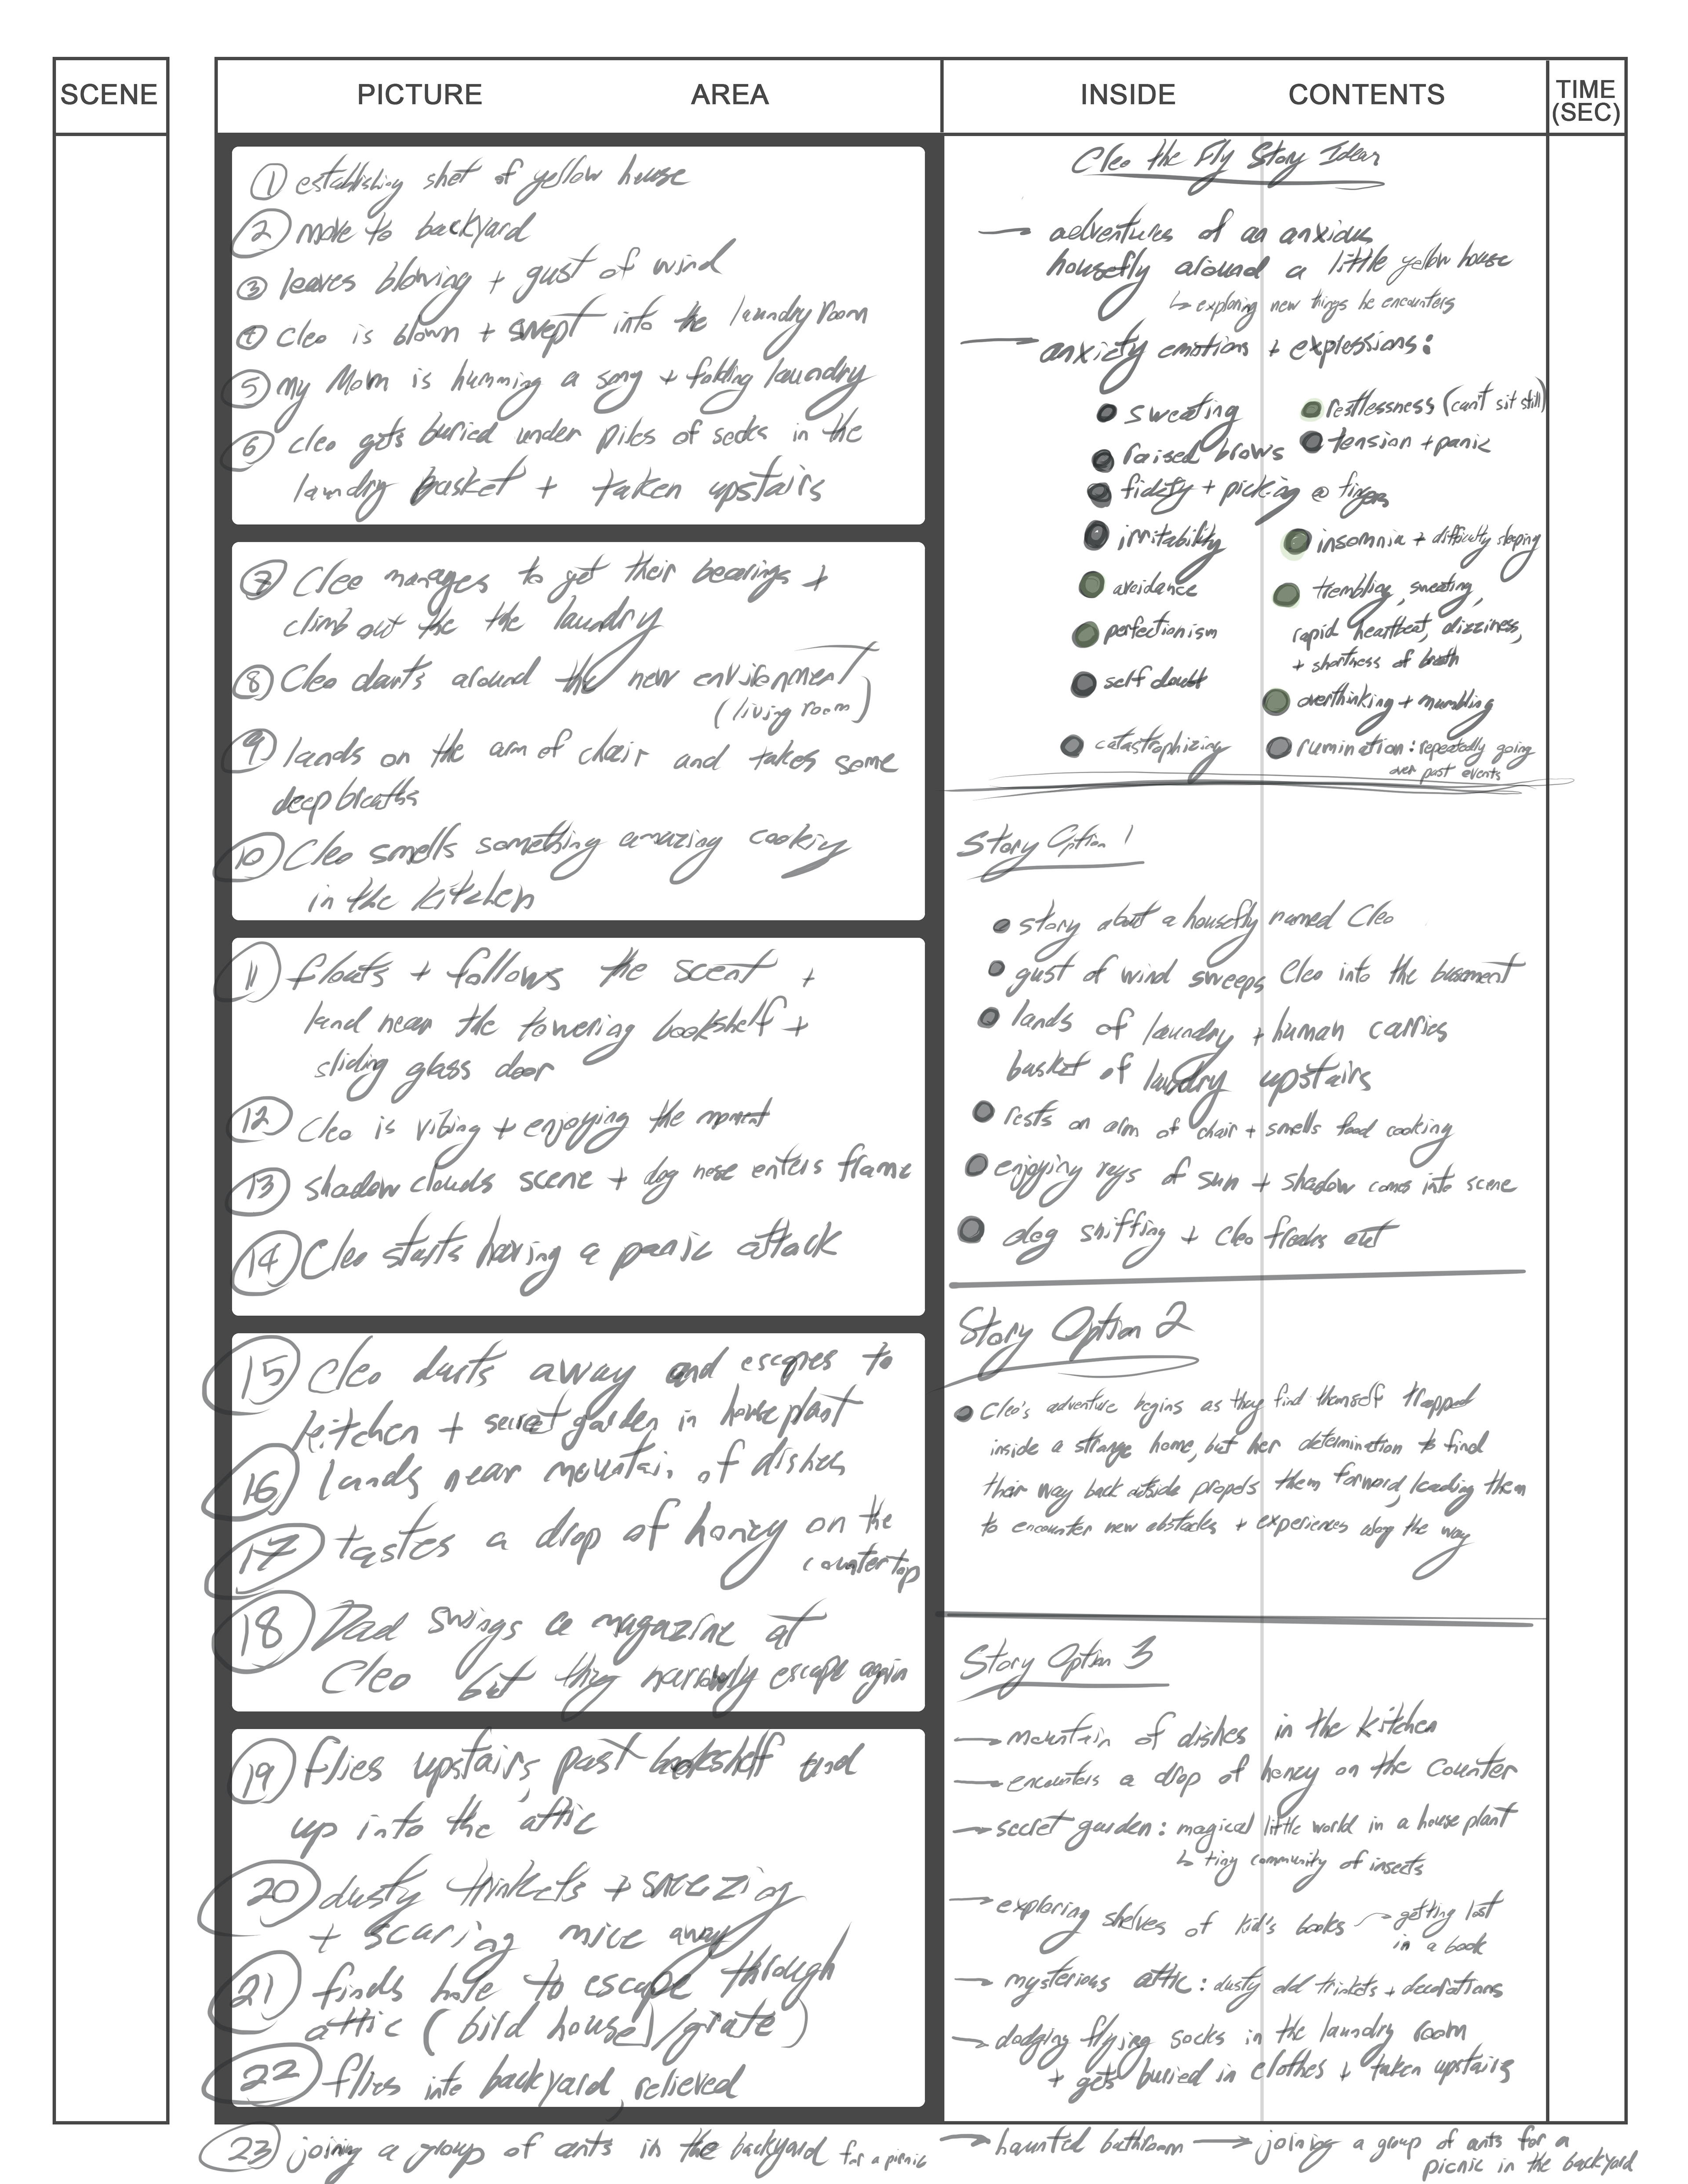 SCENE
PICTURE AREA
INSIDE CONTENTS
TIME
(SEC)
① establishing shot of yellow house
② move to backyard
③ leaves blowing + gust of wind
④ Cleo is blown + swept into the laundry room
⑤ my Mom is humming a song + folding laundry
⑥ Cleo gets buried under piles of socks in the
laundry basket + taken upstairs
⑦ Cleo manages to get their bearings +
climb out the the laundry
⑧ Cleo darts around the new environment
(living room)
⑨ lands on the arm of chair and takes some
deep breaths
⑩ Cleo smells something amazing cooking
in the kitchen
⑪ floats + follows the scent +
land near the towering bookshelf +
sliding glass door
⑫ Cleo is vibing + enjoying the moment
⑬ shadow clouds scene + dog nose enters frame
⑭ Cleo starts having a panic attack
⑮ Cleo darts away and escapes to
kitchen + secret garden in house plant
⑯ lands near mountain of dishes
⑰ tastes a drop of honey on the
countertop
⑱ Dad swings a magazine at
Cleo but they narrowly escape again
⑲ flies upstairs, past bookshelf and
up into the attic
⑳ dusty trinkets + sneezing
+ scaring mice away
㉑ finds hole to escape through
attic (bird house)/grate)
㉒ flies into backyard, relieved
㉓ joining a group of ants in the backyard for a picnic
Cleo the Fly Story Ideas
→ adventures of an anxious
housefly around a little yellow house
↳ exploring new things he encounters
→ anxiety emotions + expressions:
• sweating
• restlessness (can't sit still)
• raised brows
• tension + panic
• fidgety + picking @ fingers
• irritability
• insomnia + difficulty sleeping
• avoidance
• trembling, sweating,
rapid heartbeat, dizziness,
+ shortness of breath
• perfectionism
• self doubt
• overthinking + mumbling
• catastrophizing
• rumination: repeatedly going
over past events
Story Option 1
• story about a housefly named Cleo
• gust of wind sweeps Cleo into the basement
• lands of laundry + human carries
basket of laundry upstairs
• rests on arm of chair + smells food cooking
• enjoying rays of sun + shadow comes into scene
• dog sniffing + Cleo freaks out
Story Option 2
• Cleo's adventure begins as they find themself trapped
inside a strange home, but her determination to find
their way back outside propels them forward, leading them
to encounter new obstacles + experiences along the way
Story Option 3
→ mountain of dishes in the kitchen
→ encounters a drop of honey on the counter
→ secret garden: magical little world in a house plant
↳ tiny community of insects
→ exploring shelves of kid's books → getting lost
in a book
→ mysterious attic: dusty old trinkets + decorations
→ dodging flying socks in the laundry room
+ gets buried in clothes + taken upstairs
→ haunted bathroom → joining a group of ants for a
picnic in the backyard